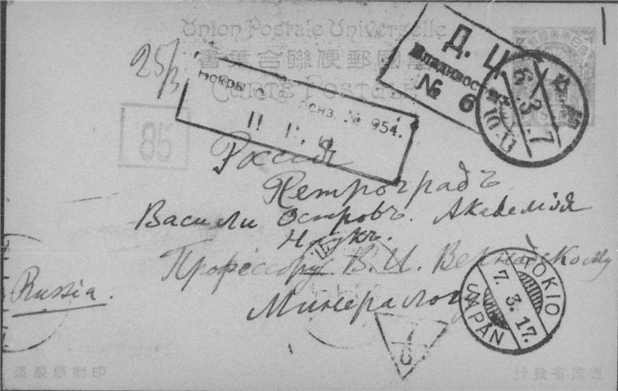 Union Postale Universelle
萬國郵便聯合葉書
CARTE POSTALE
25/3
Д. Ц.
Владивосток
№ 6
№ 954.
85
6. 3. 7
Россія
Петроградъ
Васили Островъ. Академія
Наукъ.
Профессору В. И. Вернадскому
Минералогу
Russia.
TOKIO
7. 3. 17.
JAPAN
印刷局製造
遞信省發行